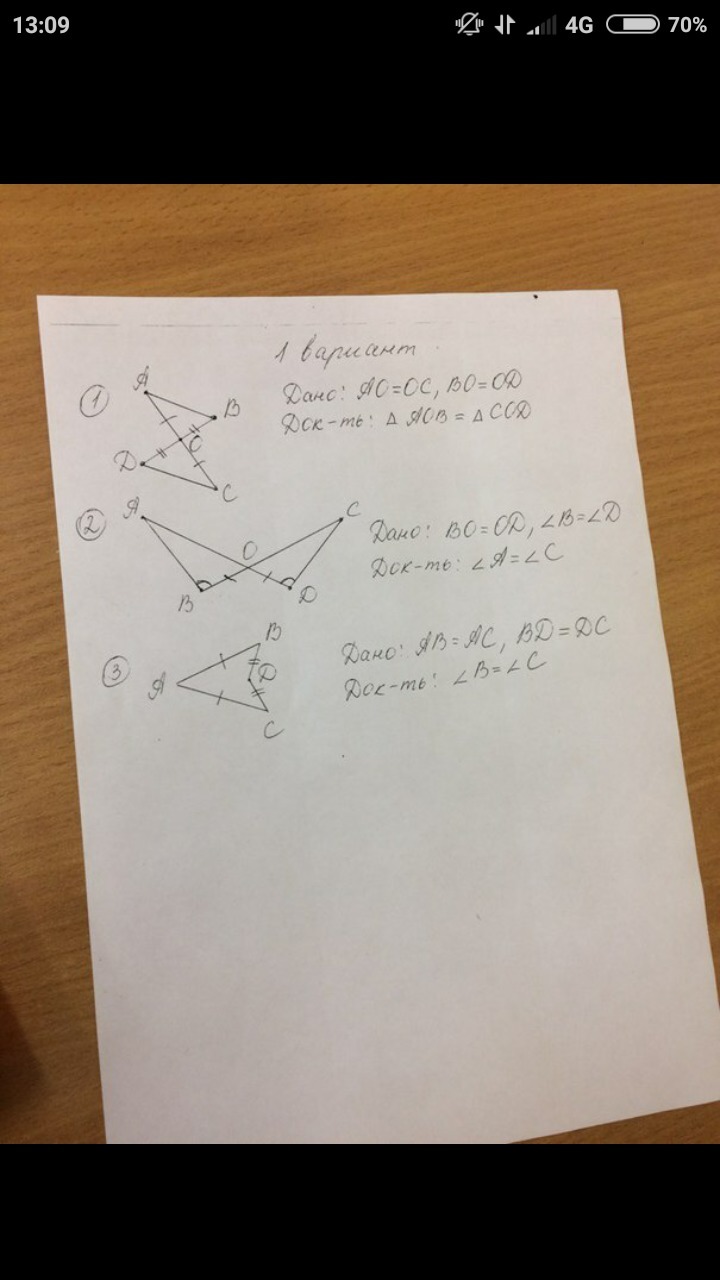 13:09 4G 70%
1 вариант.
1 A B O D C
Дано: AO=OC, BO=OD
Док-ть: △ AOB = △ COD
2 A C O B D
Дано: BO=OD, ∠B=∠D
Док-ть: ∠A=∠C
3 B D A C
Дано: AB=AC, BD=DC
Док-ть: ∠B=∠C